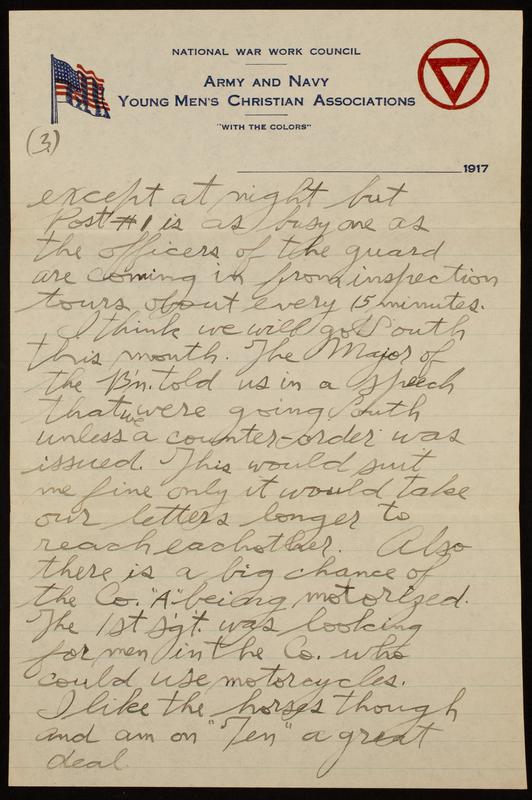 NATIONAL WAR WORK COUNCIL
ARMY AND NAVY
YOUNG MEN'S CHRISTIAN ASSOCIATIONS
"WITH THE COLORS"
(3)
1917
except at night but
Post #1 is as busy one as
the officers of the guard
are coming in from inspection
tours about every 15 minutes.
I think we will go South
this month. The Major of
the B'n. told us in a speech
that we were going South
unless a counter-order was
issued. This would suit
me fine only it would take
our letters longer to
reach eachother. Also
there is a big chance of
the Co. "A" being motorized.
The 1st Sgt. was looking
for men in the Co. who
could use motorcycles.
I like the horses though
and am on "Jen" a great
deal.